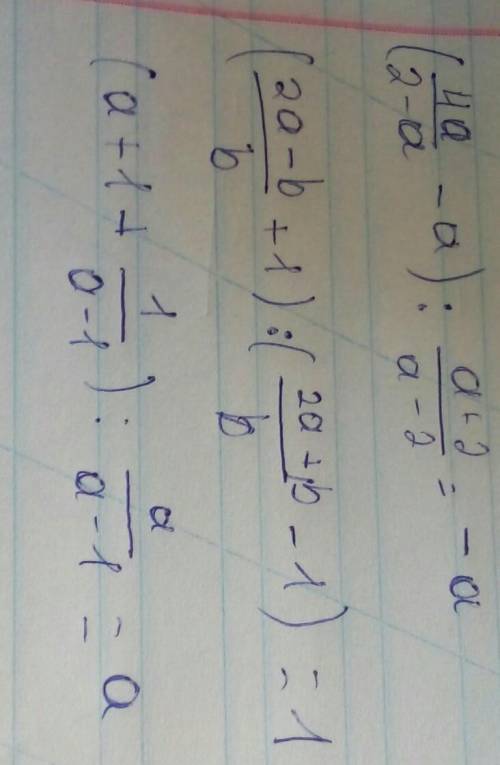 (4a/2-a - a) : a+2/a-2 = -a
(2a-b/b + 1) : (2a+b/b - 1) = 1
(a + 1 + 1/a-1) : a/a-1 = a